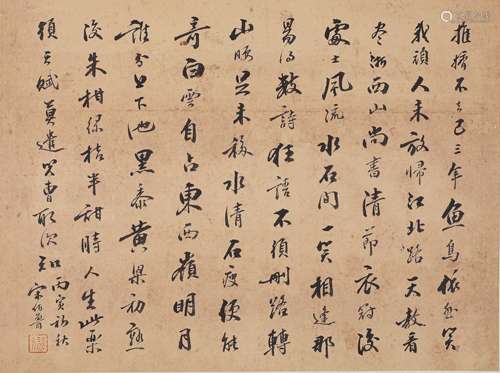 推擠不去已三年魚鳥依然笑
我頑人未放歸江北路天教看
盡浙西山尚書清節衣冠後
處士風流水石間一笑相逢那
易得數詩狂語不須刪路轉
山腰足未移水清石瘦便能
奇白雲自占東西嶺明月
誰分上下池黑黍黃粱初熟
後朱柑綠桔半甜時人生此樂
須天賦莫遣兒曹取次知 丙寅初秋
宋伯魯